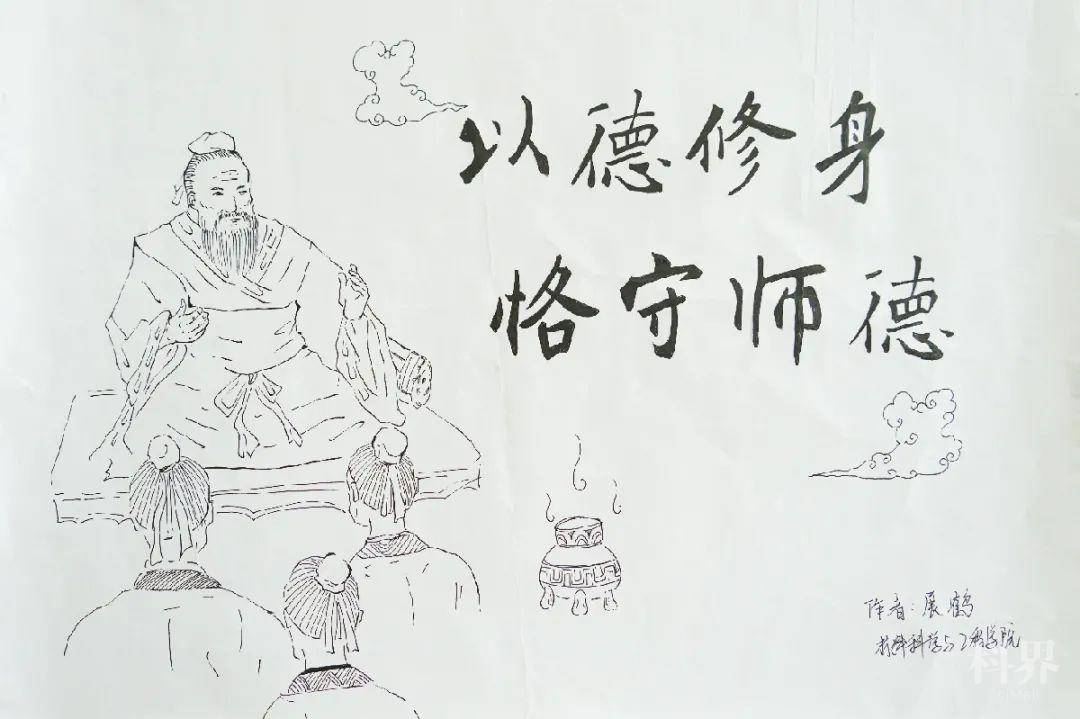 以德修身
恪守师德
作者:展鹤
材料科学与工程学院
科界